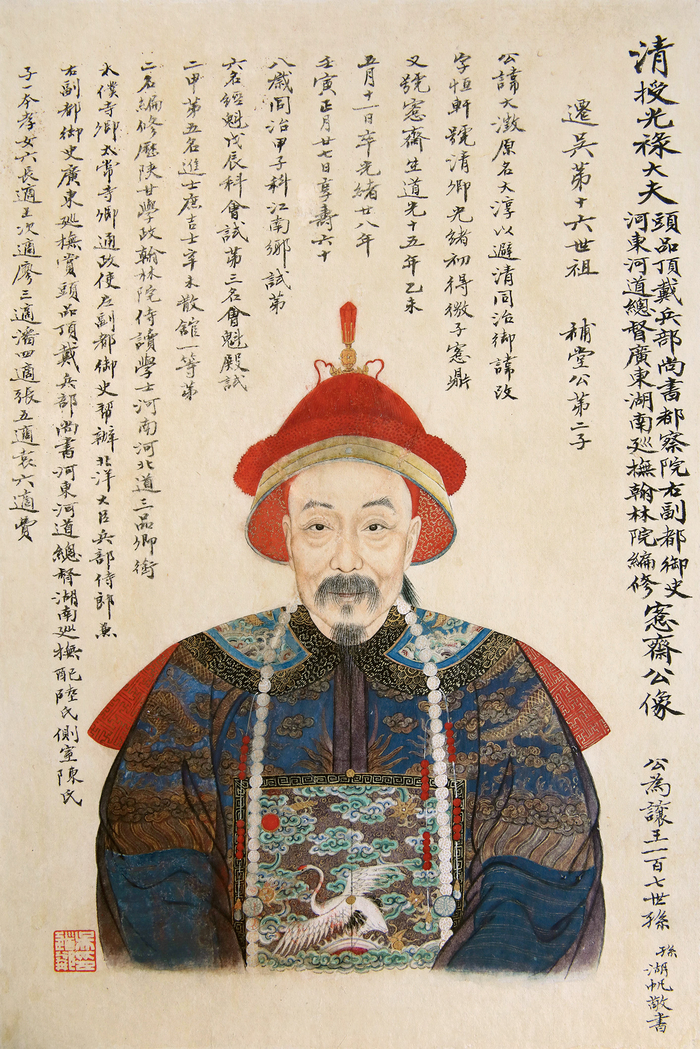 清授光祿大夫頭品頂戴兵部尚書都察院右副都御史
河東河道總督廣東湖南廵撫翰林院編修
愙齋公像
遷吳第十六世祖　補堂公第二子
公為讓王一百七世孫
孫湖帆敬書
公諱大澂原名大淳以避清同治御諱改
字恒軒號清卿光緒初得微子愙鼎
又號愙齋生道光十五年乙未
五月十一日卒光緒廿八年
壬寅正月廿七日享壽六十
八歲同治甲子科江南鄉試第
六名經魁戊辰科會試第三名會魁殿試
二甲第五名進士庶吉士辛未散館一等第
二名編修歷陝甘學政翰林院侍讀學士河南河北道三品卿銜
太僕寺卿太常寺卿通政使左副都御史幫辦北洋大臣兵部侍郎兼
右副都御史廣東廵撫賞頭品頂戴兵部尚書河東河道總督湖南廵撫配陸氏側室陳氏
子一本孝女六長適王次適廖三適潘四適張五適袁六適費